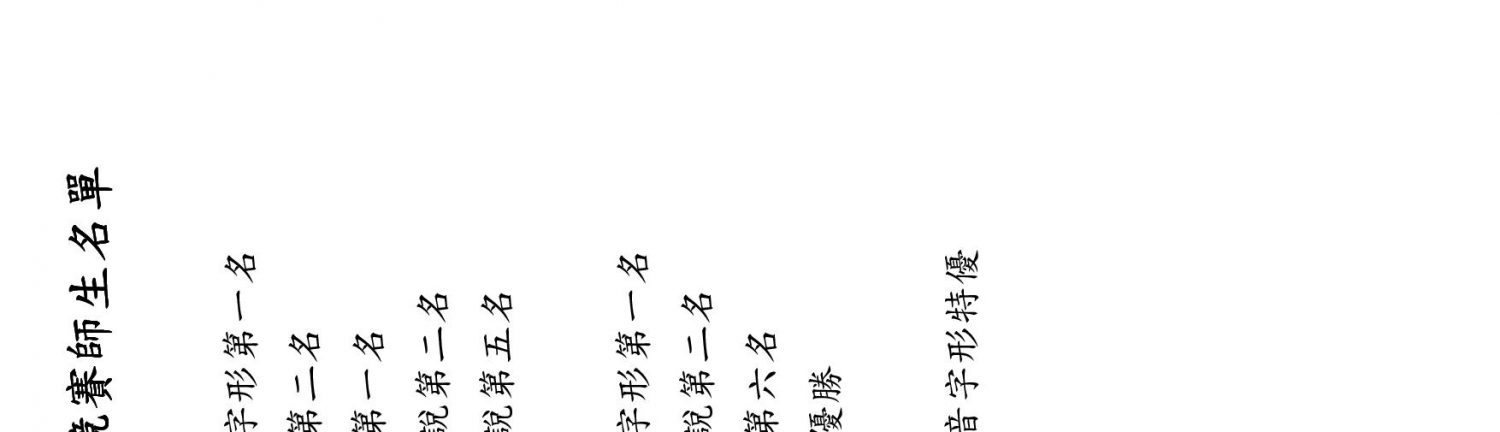 競賽師生名單
字形第一名
第二名
第一名
說第二名
說第五名
字形第一名
說第二名
第六名
優勝
音字形特優